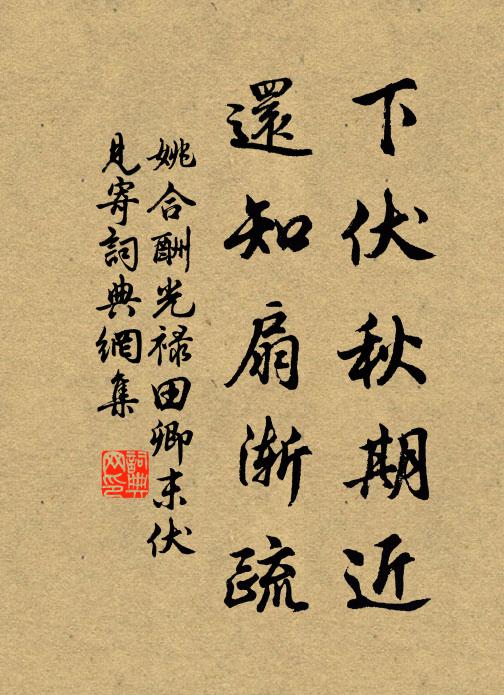 下伏秋期近
還知扇漸疏
姚合酬光祿田卿末伏
見寄詞典網集
詞典网印